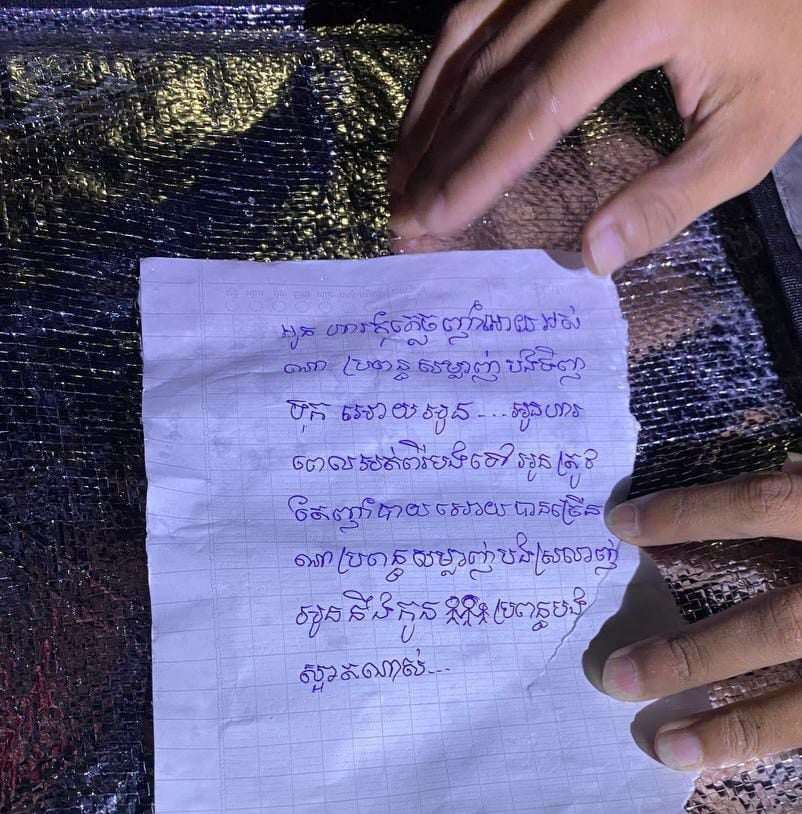 អូន ហារកុំភ្លេចញ៉ាំអោយអស់
ណា ប្រពន្ធសម្លាញ់បងទិញ
ប៊ុក អោយអូន...អូនហារ
ពេលអត់ពីរបងទៅ អូនត្រូវ
តែញ៉ាំបាយអោយបានច្រើន
ណាប្រពន្ធសម្លាញ់បងស្រលាញ់
អូននឹងកូន ប្រពន្ធបង
ស្អាតណាស់...